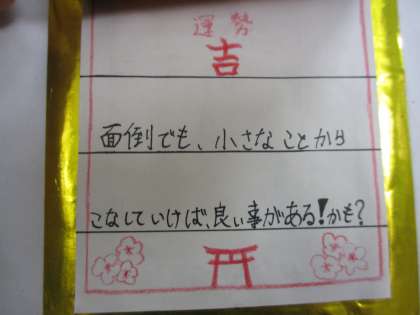 運勢
吉
面倒でも、小さなことから
こなしていけば、良い事がある!かも?